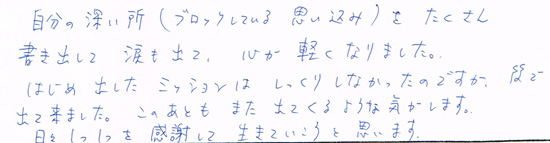 自分の深い所(ブロックしている思い込み)をたくさん
書き出して 涙も出て、心が軽くなりました。
はじめ出したミッションはしっくりしなかったのですが、後で
出て来ました。このあともまた出てくるような気がします。
日々1つ1つを感謝して生きていこうと思います。